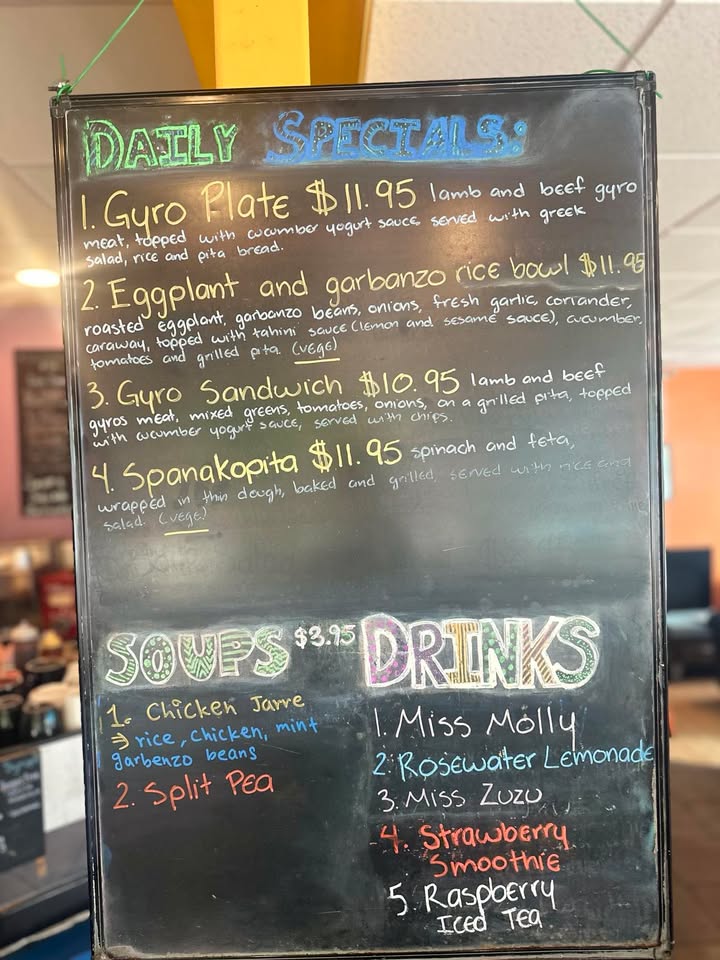 DAILY SPECIALS:
1. Gyro Plate $11.95 lamb and beef gyro
meat, topped with cucumber yogurt sauce served with greek
salad, rice and pita bread.
2. Eggplant and garbanzo rice bowl $11.95
roasted eggplant, garbanzo beans, onions, fresh garlic, coriander,
caraway, topped with tahini sauce (lemon and sesame sauce), cucumber,
tomatoes and grilled pita. (vege)
3. Gyro Sandwich $10.95 lamb and beef
gyros meat, mixed greens, tomatoes, onions, on a grilled pita, topped
with cucumber yogurt sauce, served with chips.
4. Spanakopita $11.95 spinach and feta,
wrapped in thin dough, baked and grilled, served with rice and
salad. (vege)
SOUPS $3.95
1. Chicken Jarre
→ rice, chicken, mint
garbenzo beans
2. Split Pea
DRINKS
1. Miss Molly
2. Rosewater Lemonade
3. Miss Zuzu
4. Strawberry
Smoothie
5. Raspberry
Iced Tea